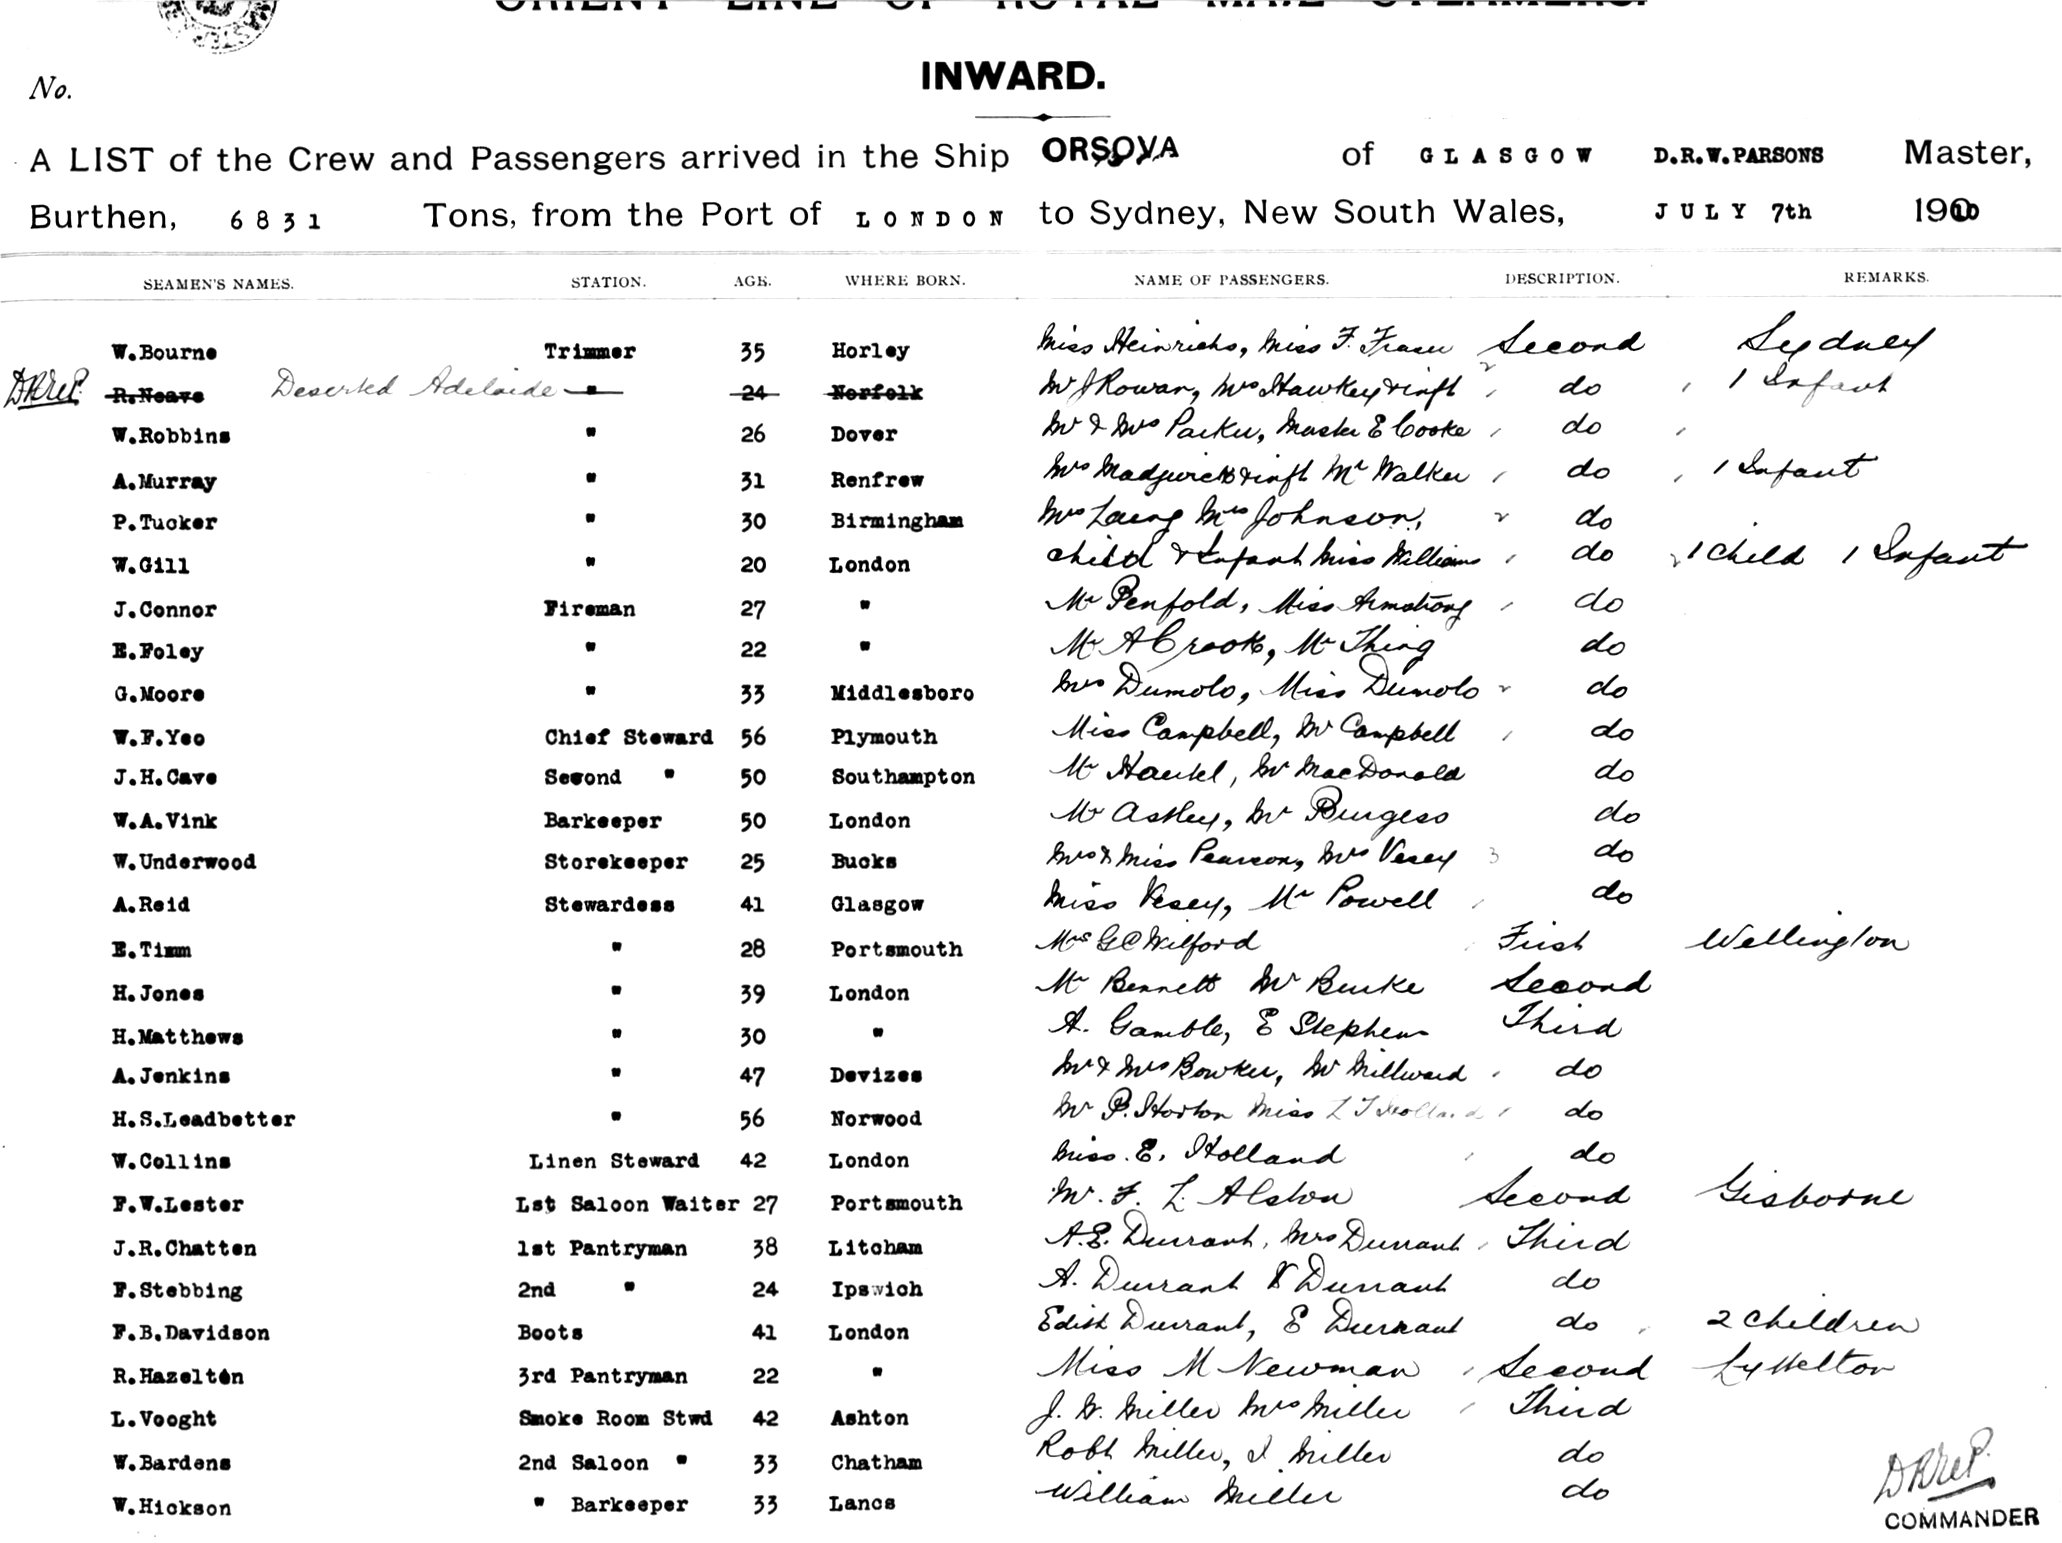 ORIENT LINE OF ROYAL MAIL STEAMERS.
INWARD.
No.
A LIST of the Crew and Passengers arrived in the Ship ORSOVA of GLASGOW D.R.W.PARSONS Master,
Burthen, 6831 Tons, from the Port of LONDON to Sydney, New South Wales, JULY 7th 1910
SEAMEN'S NAMES. STATION. AGE. WHERE BORN. NAME OF PASSENGERS. DESCRIPTION. REMARKS.
W.Bourne Trimmer 35 Horley Miss Heinrichs, Miss F. Fraser Second Sydney
R.Neave Deserted Adelaide " 24 Norfolk Mr J Rowan, Mrs Hawkey & inft do 1 Infant
W.Robbins " 26 Dover Mr & Mrs Parker, Master E Cooke do
A.Murray " 31 Renfrew Mrs Madgwick & inft Mr Walker do 1 Infant
P.Tucker " 30 Birmingham Mrs Laing Mrs Johnson, do
W.Gill " 20 London child & Infant Miss Williams do 1 child 1 Infant
J.Connor Fireman 27 " Mr Penfold, Miss Armstrong do
E.Foley " 22 " Mr A Crook, Mr Thing do
G.Moore " 33 Middlesboro Mrs Dumolo, Miss Dumolo do
W.F.Yeo Chief Steward 56 Plymouth Miss Campbell, Mr Campbell do
J.H.Cave Second " 50 Southampton Mr , Mr MacDonald do
W.A.Vink Barkeeper 50 London Mr Astley, Mr Burgess do
W.Underwood Storekeeper 25 Bucks Mrs & Miss Pearson, Mrs Vesey 3 do
A.Reid Stewardess 41 Glasgow Miss Vesey, Mr Powell do
E.Timm " 28 Portsmouth Mrs G C Wilford First Wellington
H.Jones " 39 London Mr Bennett Mr Burke Second
H.Matthews " 30 " A. Gamble, E Stephens Third
A.Jenkins " 47 Devizes Mr & Mrs Bowker, Mr Millward do
H.S.Leadbetter " 56 Norwood Mr P. Horton Miss L J Holland do
W.Collins Linen Steward 42 London Miss. E. Holland do
F.W.Lester Lst Saloon Waiter 27 Portsmouth Mr. F. L. Alston Second Gisborne
J.R.Chatten 1st Pantryman 38 Litcham A.E. Durrant, Mrs Durrant Third
F.Stebbing 2nd " 24 Ipswich A. Durrant V Durrant do
F.B.Davidson Boots 41 London Edith Durrant, E Durrant do 2 children
R.Hazelton 3rd Pantryman 22 " Miss M Newman Second Lyttelton
L.Vooght Smoke Room Stwd 42 Ashton J. W. Miller Mrs Miller Third
W.Bardens 2nd Saloon " 33 Chatham Robt Miller, I Miller do
W.Hickson " Barkeeper 33 Lancs William Miller do
COMMANDER